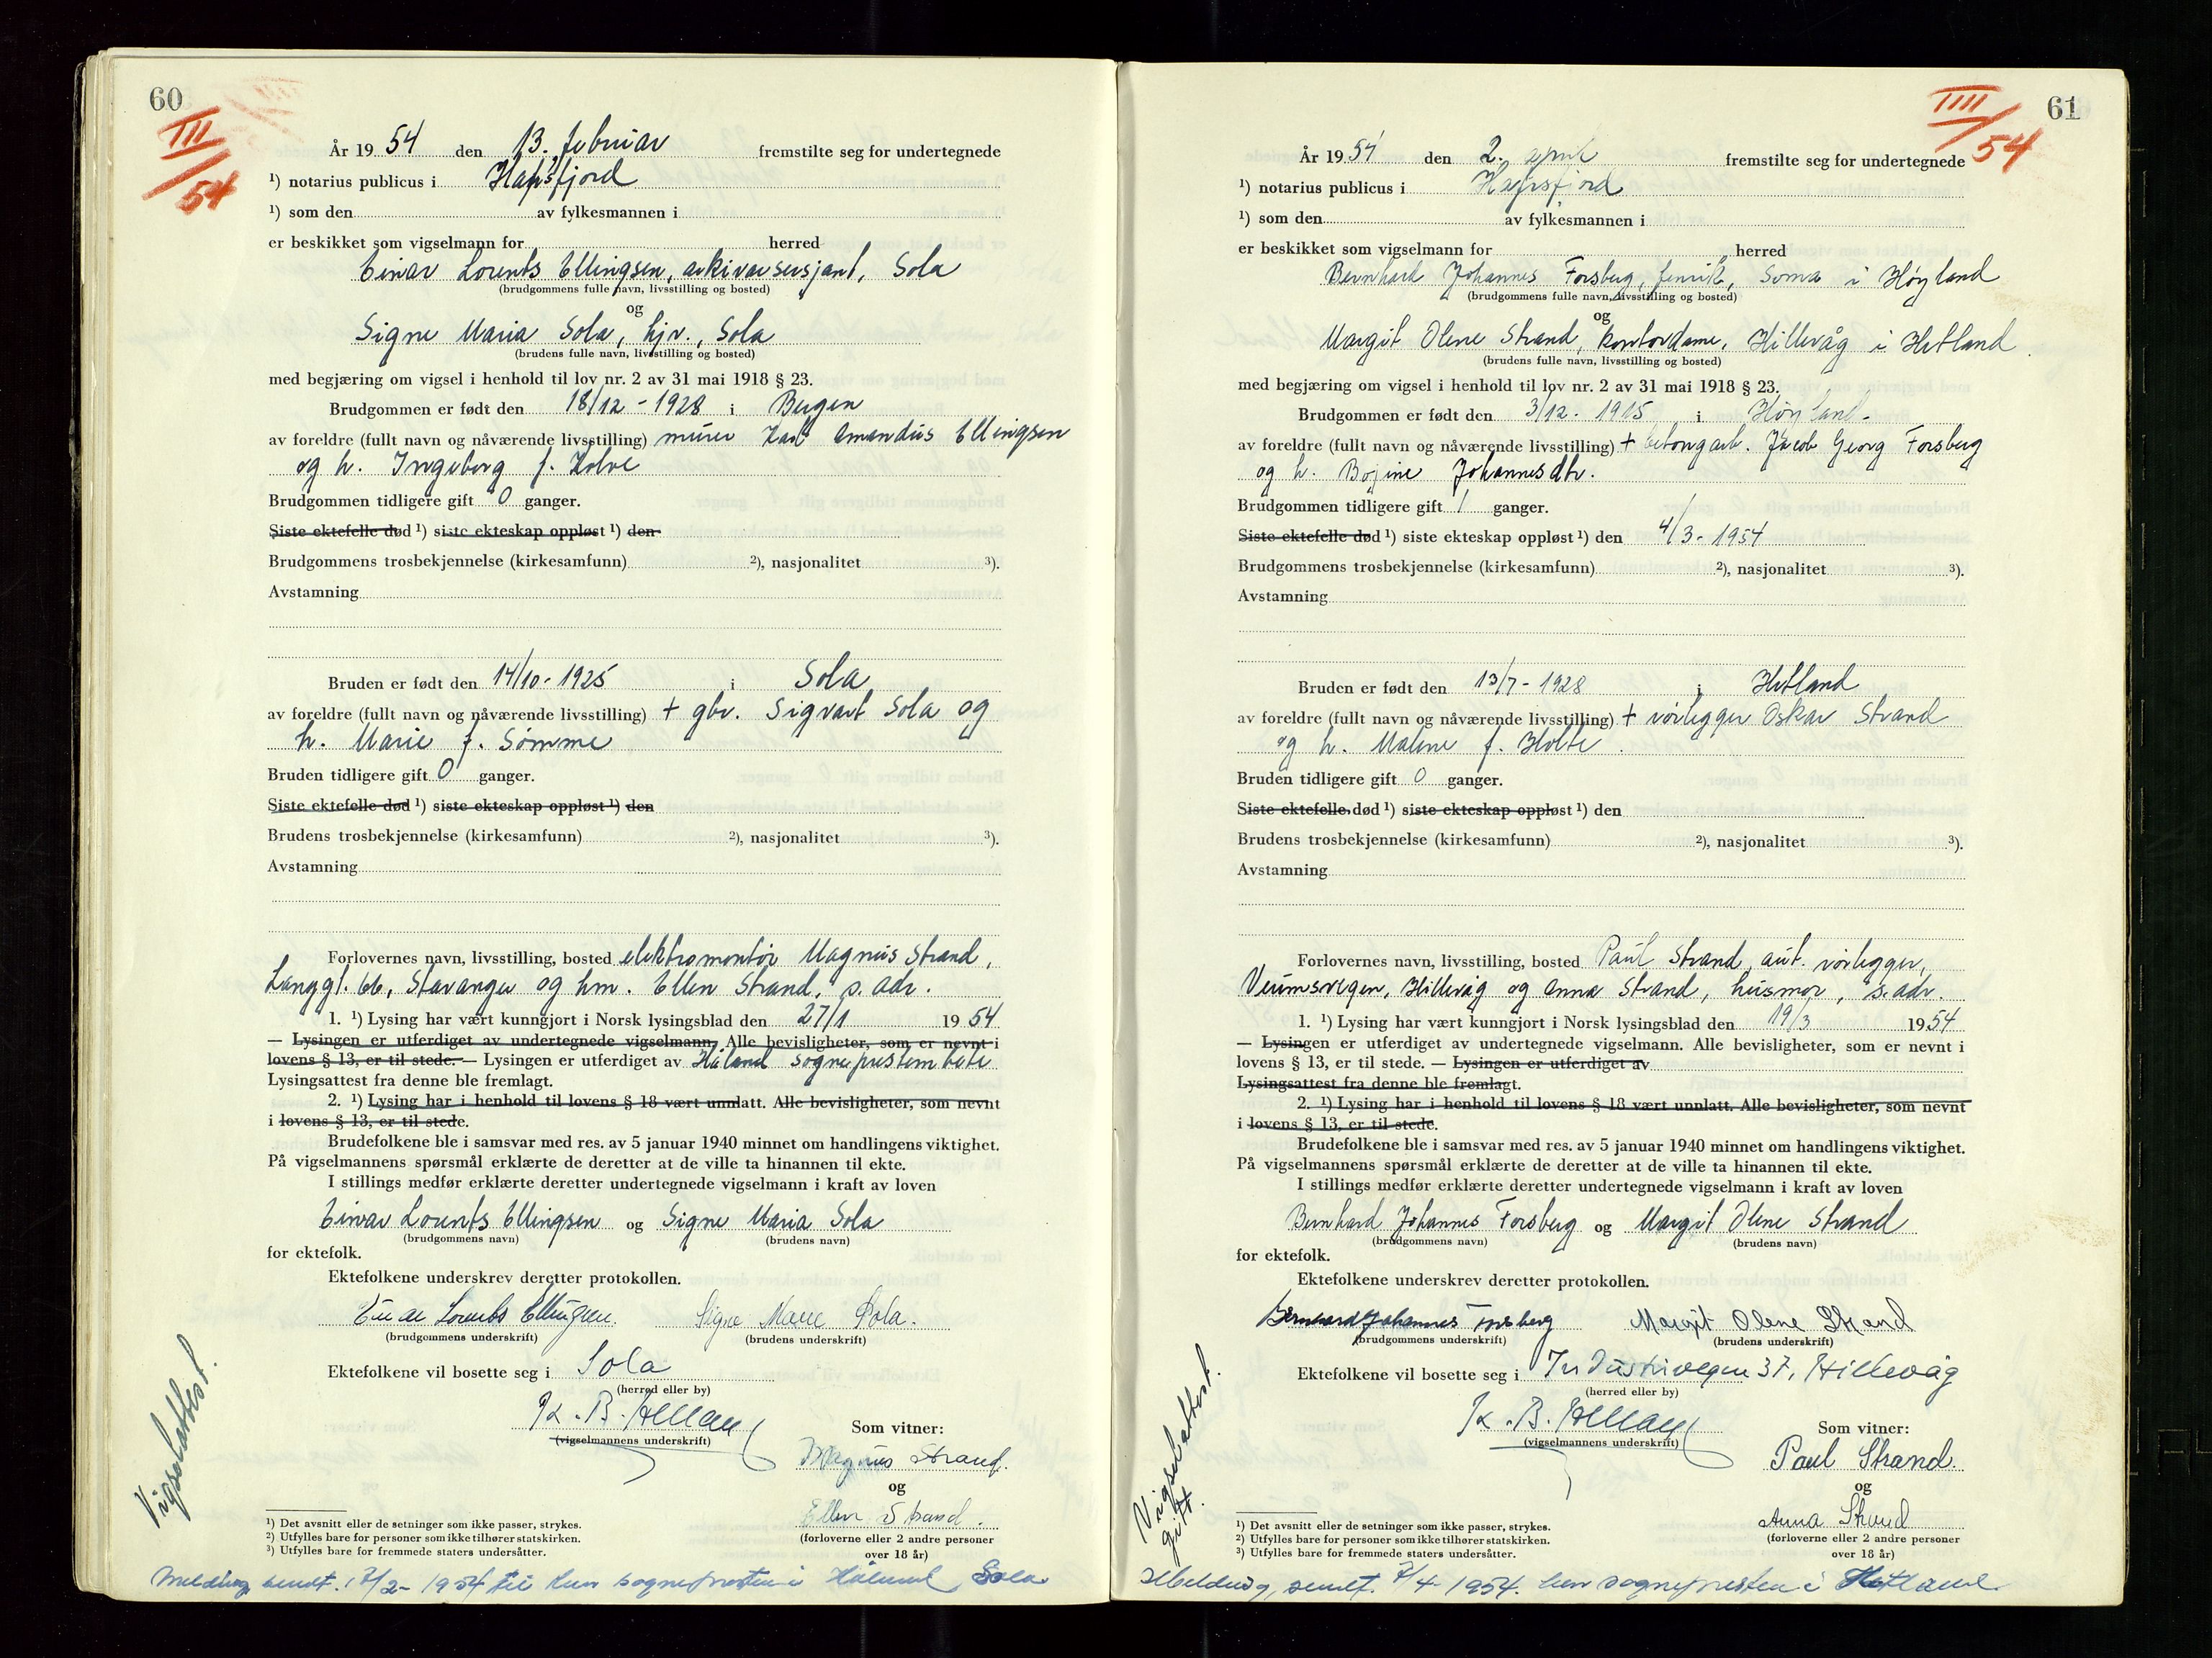 60
III/54
År 1954 den 13. februar fremstilte seg for undertegnede
¹) notarius publicus i Hafrsfjord
¹) som den av fylkesmannen i
er beskikket som vigselmann for herred
Einar Lorents Ellingsen, arkivarsersjant, Sola
(brudgommens fulle navn, livsstilling og bosted)
og
Signe Maria Sola, hjv., Sola
(brudens fulle navn, livsstilling og bosted)
med begjæring om vigsel i henhold til lov nr. 2 av 31 mai 1918 § 23.
Brudgommen er født den 18/12 - 1928 i Bergen
av foreldre (fullt navn og nåværende livsstilling) murer Karl Amandus Ellingsen
og h. Ingeborg f. Kolve
Brudgommen tidligere gift 0 ganger.
Siste ektefelle død ¹) siste ekteskap oppløst ¹) den
Brudgommens trosbekjennelse (kirkesamfunn) ²), nasjonalitet ³).
Avstamning
Bruden er født den 14/10 - 1925 i Sola
av foreldre (fullt navn og nåværende livsstilling) + gbr. Sigvart Sola og
h. Marie f. Sømme
Bruden tidligere gift 0 ganger.
Siste ektefelle død ¹) siste ekteskap oppløst ¹) den
Brudens trosbekjennelse (kirkesamfunn) ²), nasjonalitet ³).
Avstamning
Forlovernes navn, livsstilling, bosted elektromontør Magnus Strand,
Langgt. 66, Stavanger og hm. Ellen Strand, s. adr.
1. ¹) Lysing har vært kunngjort i Norsk lysingsblad den 27/1 1954
— Lysingen er utferdiget av undertegnede vigselmann. Alle bevisligheter, som er nevnt i
lovens § 13, er til stede. — Lysingen er utferdiget av Håland sogneprestembete
Lysingsattest fra denne ble fremlagt.
2. ¹) Lysing har i henhold til lovens § 18 vært unnlatt. Alle bevisligheter, som nevnt
i lovens § 13, er til stede.
Brudefolkene ble i samsvar med res. av 5 januar 1940 minnet om handlingens viktighet.
På vigselmannens spørsmål erklærte de deretter at de ville ta hinannen til ekte.
I stillings medfør erklærte deretter undertegnede vigselmann i kraft av loven
Einar Lorents Ellingsen og Signe Maria Sola
(brudgommens navn) (brudens navn)
for ektefolk.
Ektefolkene underskrev deretter protokollen.
Einar Lorents Ellingsen. Signe Marie Sola.
(brudgommens underskrift) (brudens underskrift)
Ektefolkene vil bosette seg i Sola
(herred eller by)
(vigselmannens underskrift)
Som vitner:
Magnus Strand.
og
Ellen Strand.
(forloverne eller 2 andre personer
over 18 år)
Vigselsattest.
¹) Det avsnitt eller de setninger som ikke passer, strykes.
²) Utfylles bare for personer som ikke tilhører statskirken.
³) Utfylles bare for fremmede staters undersåtter.
Melding sendt. /2- 1954 til herr sognepresten i Håland, Sola
61
IIII/54
År 1954 den 2. april fremstilte seg for undertegnede
¹) notarius publicus i Hafrsfjord
¹) som den av fylkesmannen i
er beskikket som vigselmann for herred
Bernhard Johannes Forsberg, fenrik, Soma i Høyland
(brudgommens fulle navn, livsstilling og bosted)
og
Margit Olene Strand, kontordame, Hillevåg i Hetland.
(brudens fulle navn, livsstilling og bosted)
med begjæring om vigsel i henhold til lov nr. 2 av 31 mai 1918 § 23.
Brudgommen er født den 3/12 - 1915 i Høyland.
av foreldre (fullt navn og nåværende livsstilling) + betongarb. Jacob Georg Forsberg
og h. Bojine Johannesdtr.
Brudgommen tidligere gift 1 ganger.
Siste ektefelle død ¹) siste ekteskap oppløst ¹) den 4/3 - 1954
Brudgommens trosbekjennelse (kirkesamfunn) ²), nasjonalitet ³).
Avstamning
Bruden er født den 13/7 - 1928 i Hetland
av foreldre (fullt navn og nåværende livsstilling) + rørlegger Oskar Strand
og h. Malene f. Holte.
Bruden tidligere gift 0 ganger.
Siste ektefelle død ¹) siste ekteskap oppløst ¹) den
Brudens trosbekjennelse (kirkesamfunn) ²), nasjonalitet ³).
Avstamning
Forlovernes navn, livsstilling, bosted Paul Strand, aut. rørlegger,
Veumsvegen, Hillevåg og Anna Strand, husmor, s. adr.
1. ¹) Lysing har vært kunngjort i Norsk lysingsblad den 19/3 1954
— Lysingen er utferdiget av undertegnede vigselmann. Alle bevisligheter, som er nevnt i
lovens § 13, er til stede. — Lysingen er utferdiget av
Lysingsattest fra denne ble fremlagt.
2. ¹) Lysing har i henhold til lovens § 18 vært unnlatt. Alle bevisligheter, som nevnt
i lovens § 13, er til stede.
Brudefolkene ble i samsvar med res. av 5 januar 1940 minnet om handlingens viktighet.
På vigselmannens spørsmål erklærte de deretter at de ville ta hinannen til ekte.
I stillings medfør erklærte deretter undertegnede vigselmann i kraft av loven
Bernhard Johannes Forsberg og Margit Olene Strand
(brudgommens navn) (brudens navn)
for ektefolk.
Ektefolkene underskrev deretter protokollen.
Bernhard Johannes Forsberg Margit Olene Strand
(brudgommens underskrift) (brudens underskrift)
Ektefolkene vil bosette seg i Industrivegen 37, Hillevåg
(herred eller by)
(vigselmannens underskrift)
Som vitner:
Paul Strand.
og
Anna Strand
(forloverne eller 2 andre personer
over 18 år)
Vigselsattest.
gitt.
¹) Det avsnitt eller de setninger som ikke passer, strykes.
²) Utfylles bare for personer som ikke tilhører statskirken.
³) Utfylles bare for fremmede staters undersåtter.
Melding, sendt. /4- 1954. herr sognepresten i Hetland.